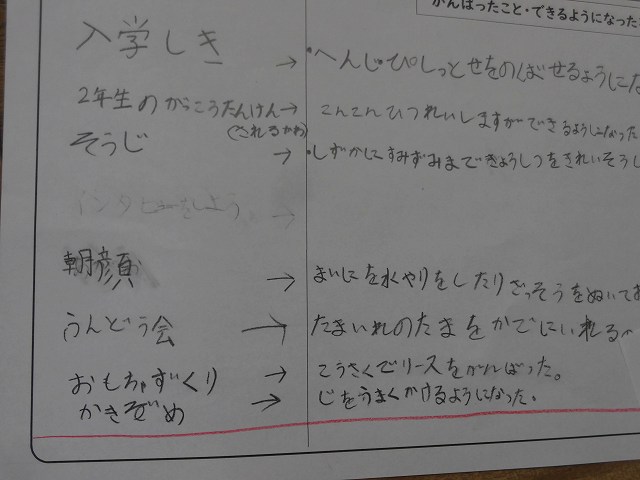 がんばったこと・できるようになった
入学しき → ・へんじ・ぴしっとせをのばせるようにな
2年生のがっこうたんけん→ こんこんしつれいしますができるようになった
(されるがわ)
そうじ → ・しずかにすみずみまできょうしつをきれいそうし
インタビューをしよう →
朝顔 → まいにを水やりをしたりざっそうをぬいてお
うんどう会 → たまいれのたまをかごにいれるが
おもちゃずくり → こうさくでリースをがんばった。
かきぞめ → じをうまくかけるようになった。